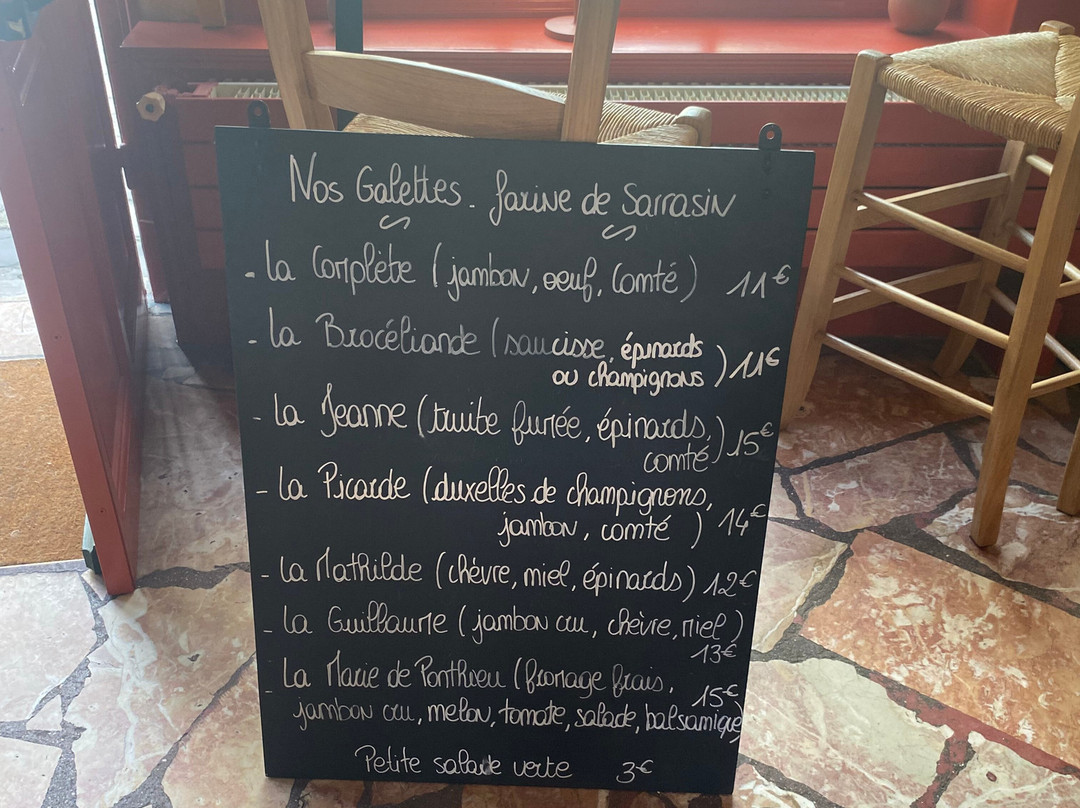 Nos Galettes - farine de Sarrasin
- La Complète (jambon, oeuf, Comté) 11€
- La Brocéliande (saucisse, épinards
ou champignons) 11€
- La Jeanne (truite fumée, épinards,
comté) 15€
- La Picarde (duxelles de champignons,
jambon, comté) 14€
- La Mathilde (chèvre, miel, épinards) 12€
- La Guillaume (jambon cru, chèvre, miel)
13€
- La Marie de Ponthieu (fromage frais,
15€
jambon cru, melon, tomate, salade, balsamique)
Petite salade verte 3€